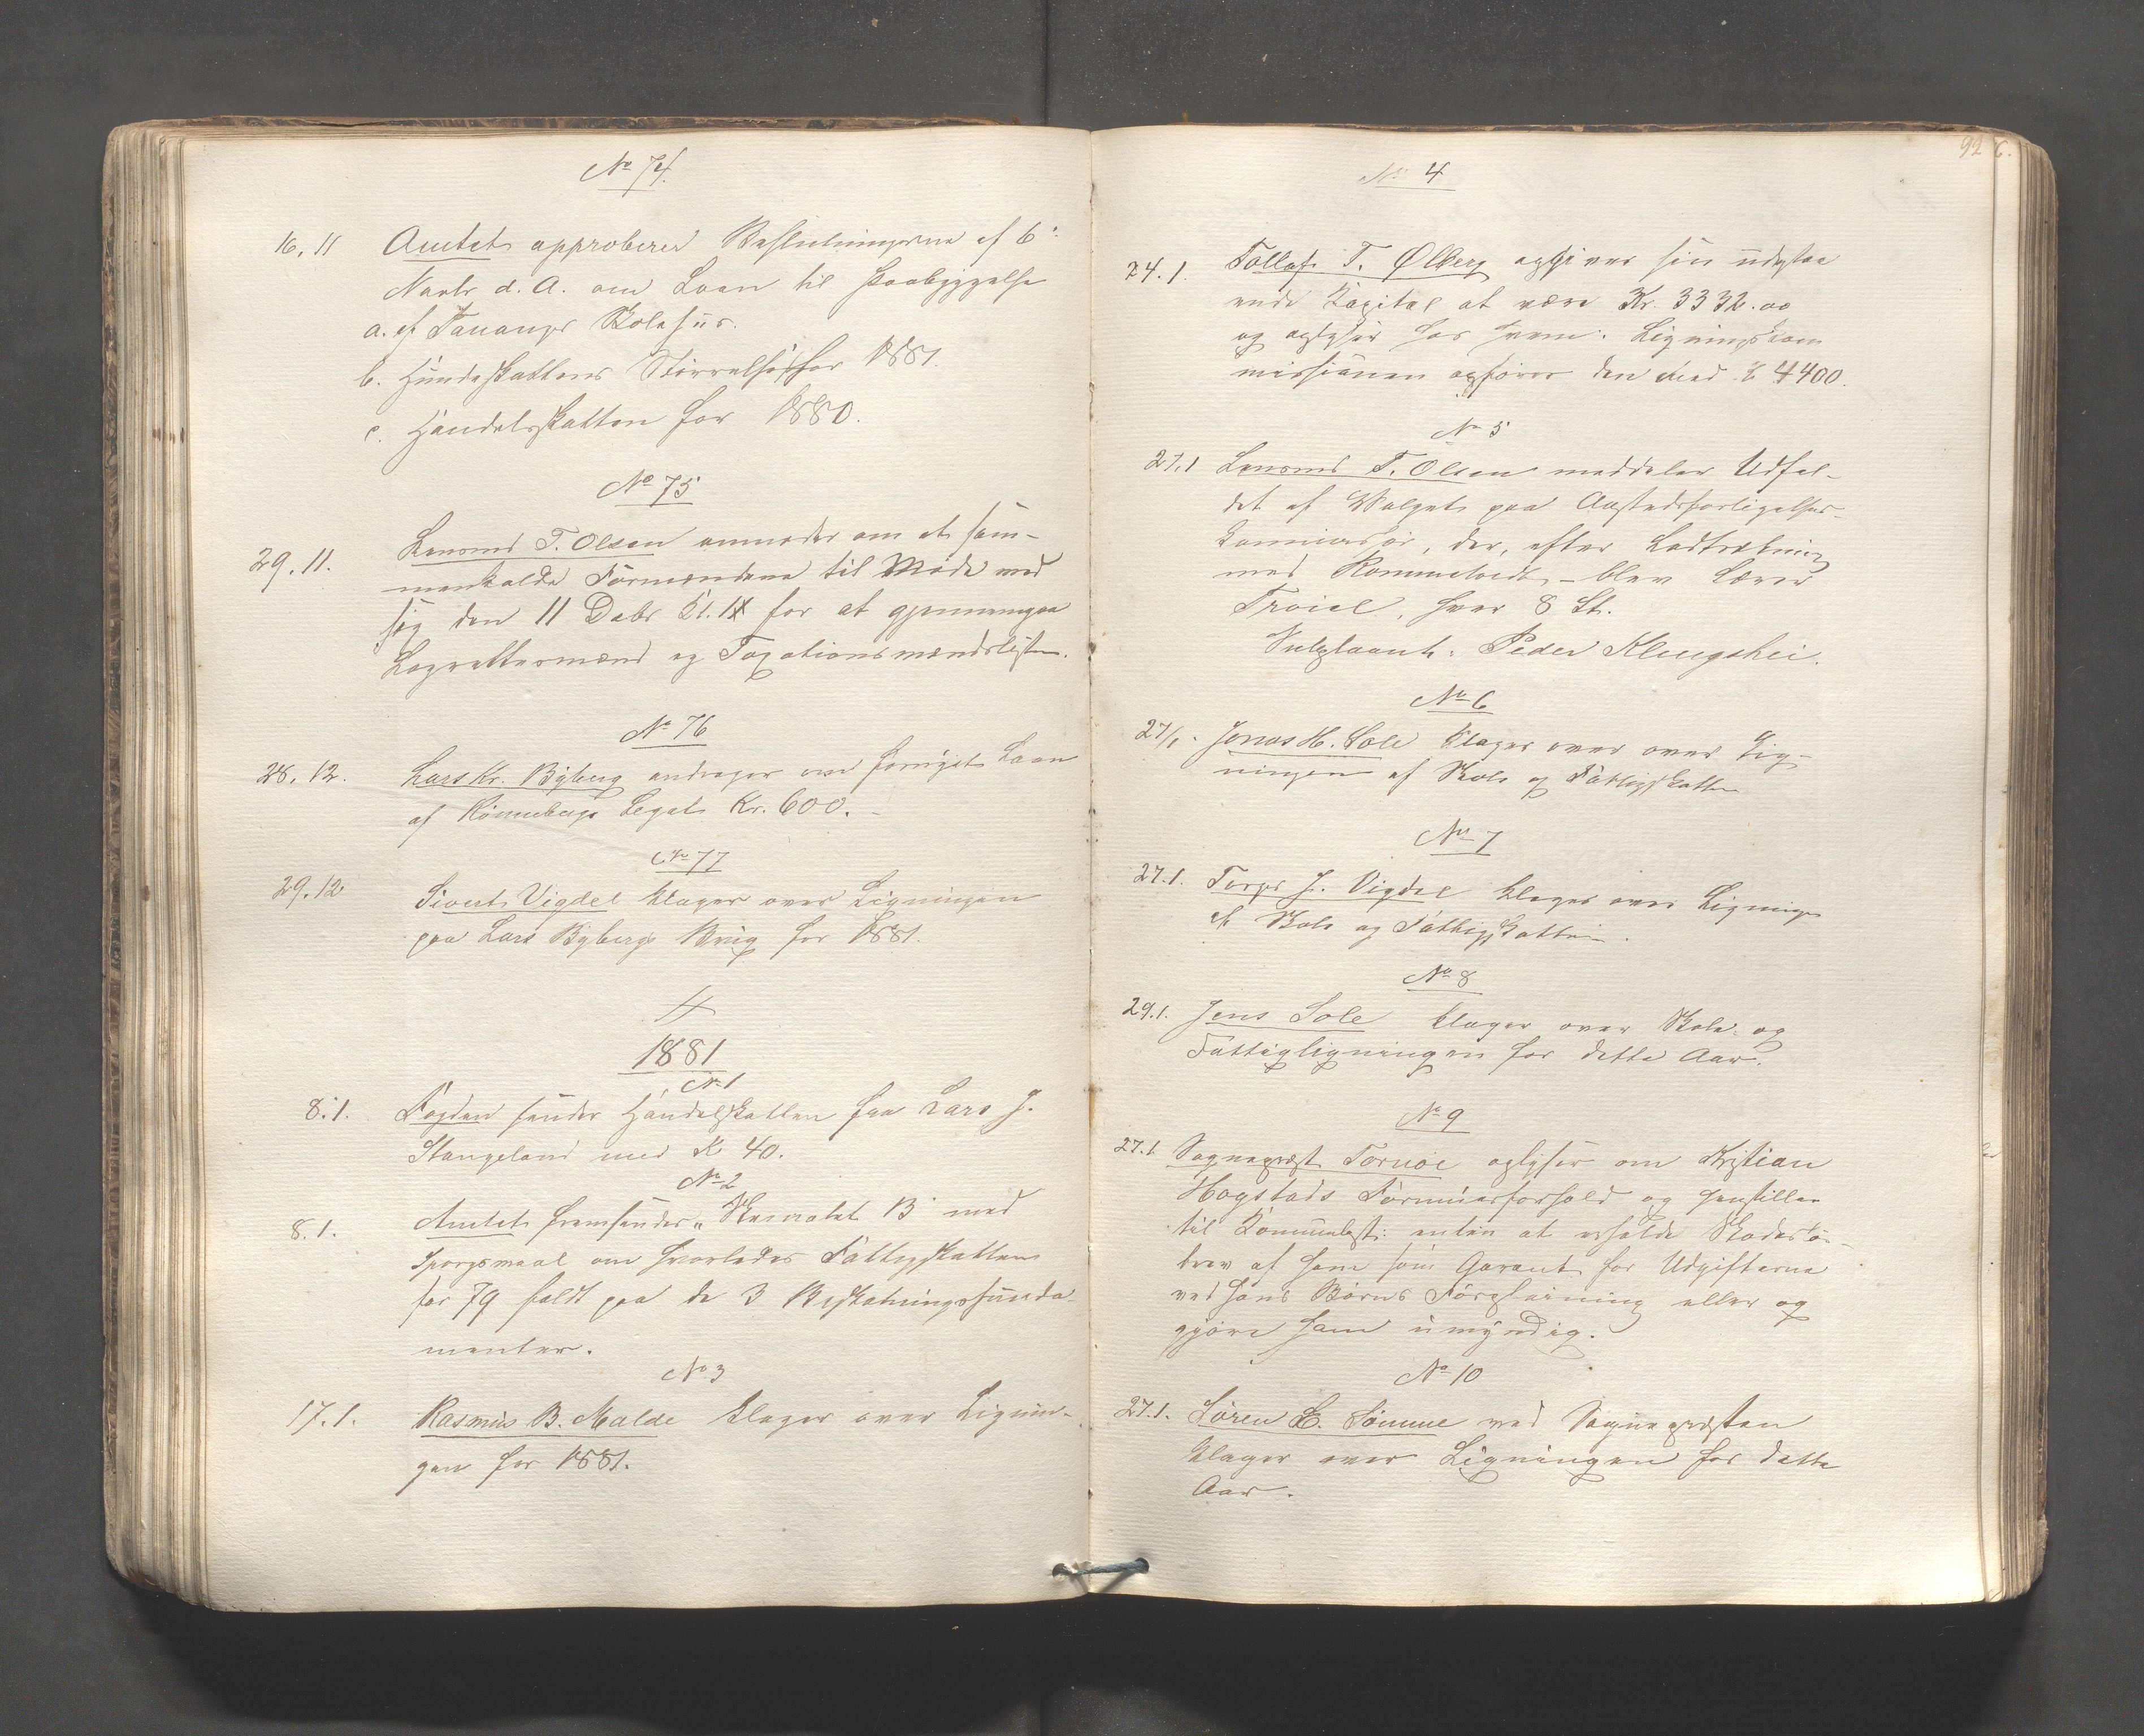 No 74.
16. 11 Amtet approberer Beslutningerne af 6'
Novbr d. A. om Laan til Paabyggelse
a. af Tananger Skolehus.
b. Hundeskattens Størrelse for 1881.
c. Handelsskatten for 1880.
No 75
29. 11. Lensmd T. Olsen anmoder om at sam-
menkalde Formændene til Møde med
sig den 11 Debr Kl. for at gjennemgaa
Lagrettesmænd og Taxationsmændslisten.
No 76
28. 12. Lars Kr. Byberg andrager om fornyet Laan
af Rønnebergs Legat Kr. 600.-
No 77
29. 12 Sivert Vigdel klager over Ligningen
paa Lars Bybergs Brug for 1881.
1881
No 1
8. 1. Fogden sender Handelsskatten fra Lars J.
Stangeland med K 40.
No 2
8. 1. Amtet fremsender "Skemalet B" med
Spørgsmaal om hvorledes Fattigskatten
for 79 faldt paa de 3 Beskatningsfunda-
menter.
No 3
17. 1. Rasmus B. Malde klager over Lignin-
gen for 1881.
92 6.
No 4
24. 1. Tollaf T. Ølberg opgiver sin udestaa
ende Kapital at være Kr. 3332.00
og oplyser hos hvem. Ligningskom
missionen opfører den med K 4400.
No 5
27. 1 Lensmd T. Olsen meddeler Udfal-
det af Valget paa Aastedsforligelses-
kommissær, der, efter Lodtrækning
med Rommetvedt - blev Lærer
hver 8 St.
Suppleant: Peder Klungshei.
No 6
27/1. Jonas H. Sole klager over over Lig-
ningen af Skole og Fattigskatten
No 7
27. 1. Torger J. Vigdel klager over Ligningen
af Skole og Fattigskatten.
No 8
29. 1. Jens Sole klager over Skole og
Fattigligningen for dette Aar.
No 9
27. 1 Sognepræst Tornøe oplyser om Kristian
Hogstads Formuesforhold og henstiller
til Kommunebest: enten at erholde Skades-
brev af ham som Garant for Udgifterne
ved hans Børns Forpleining eller og
gjøre ham umyndig.
No 10
27. 1. Sören E. Sömme ved Sognepræsten
klager over Ligningen for dette
Aar.